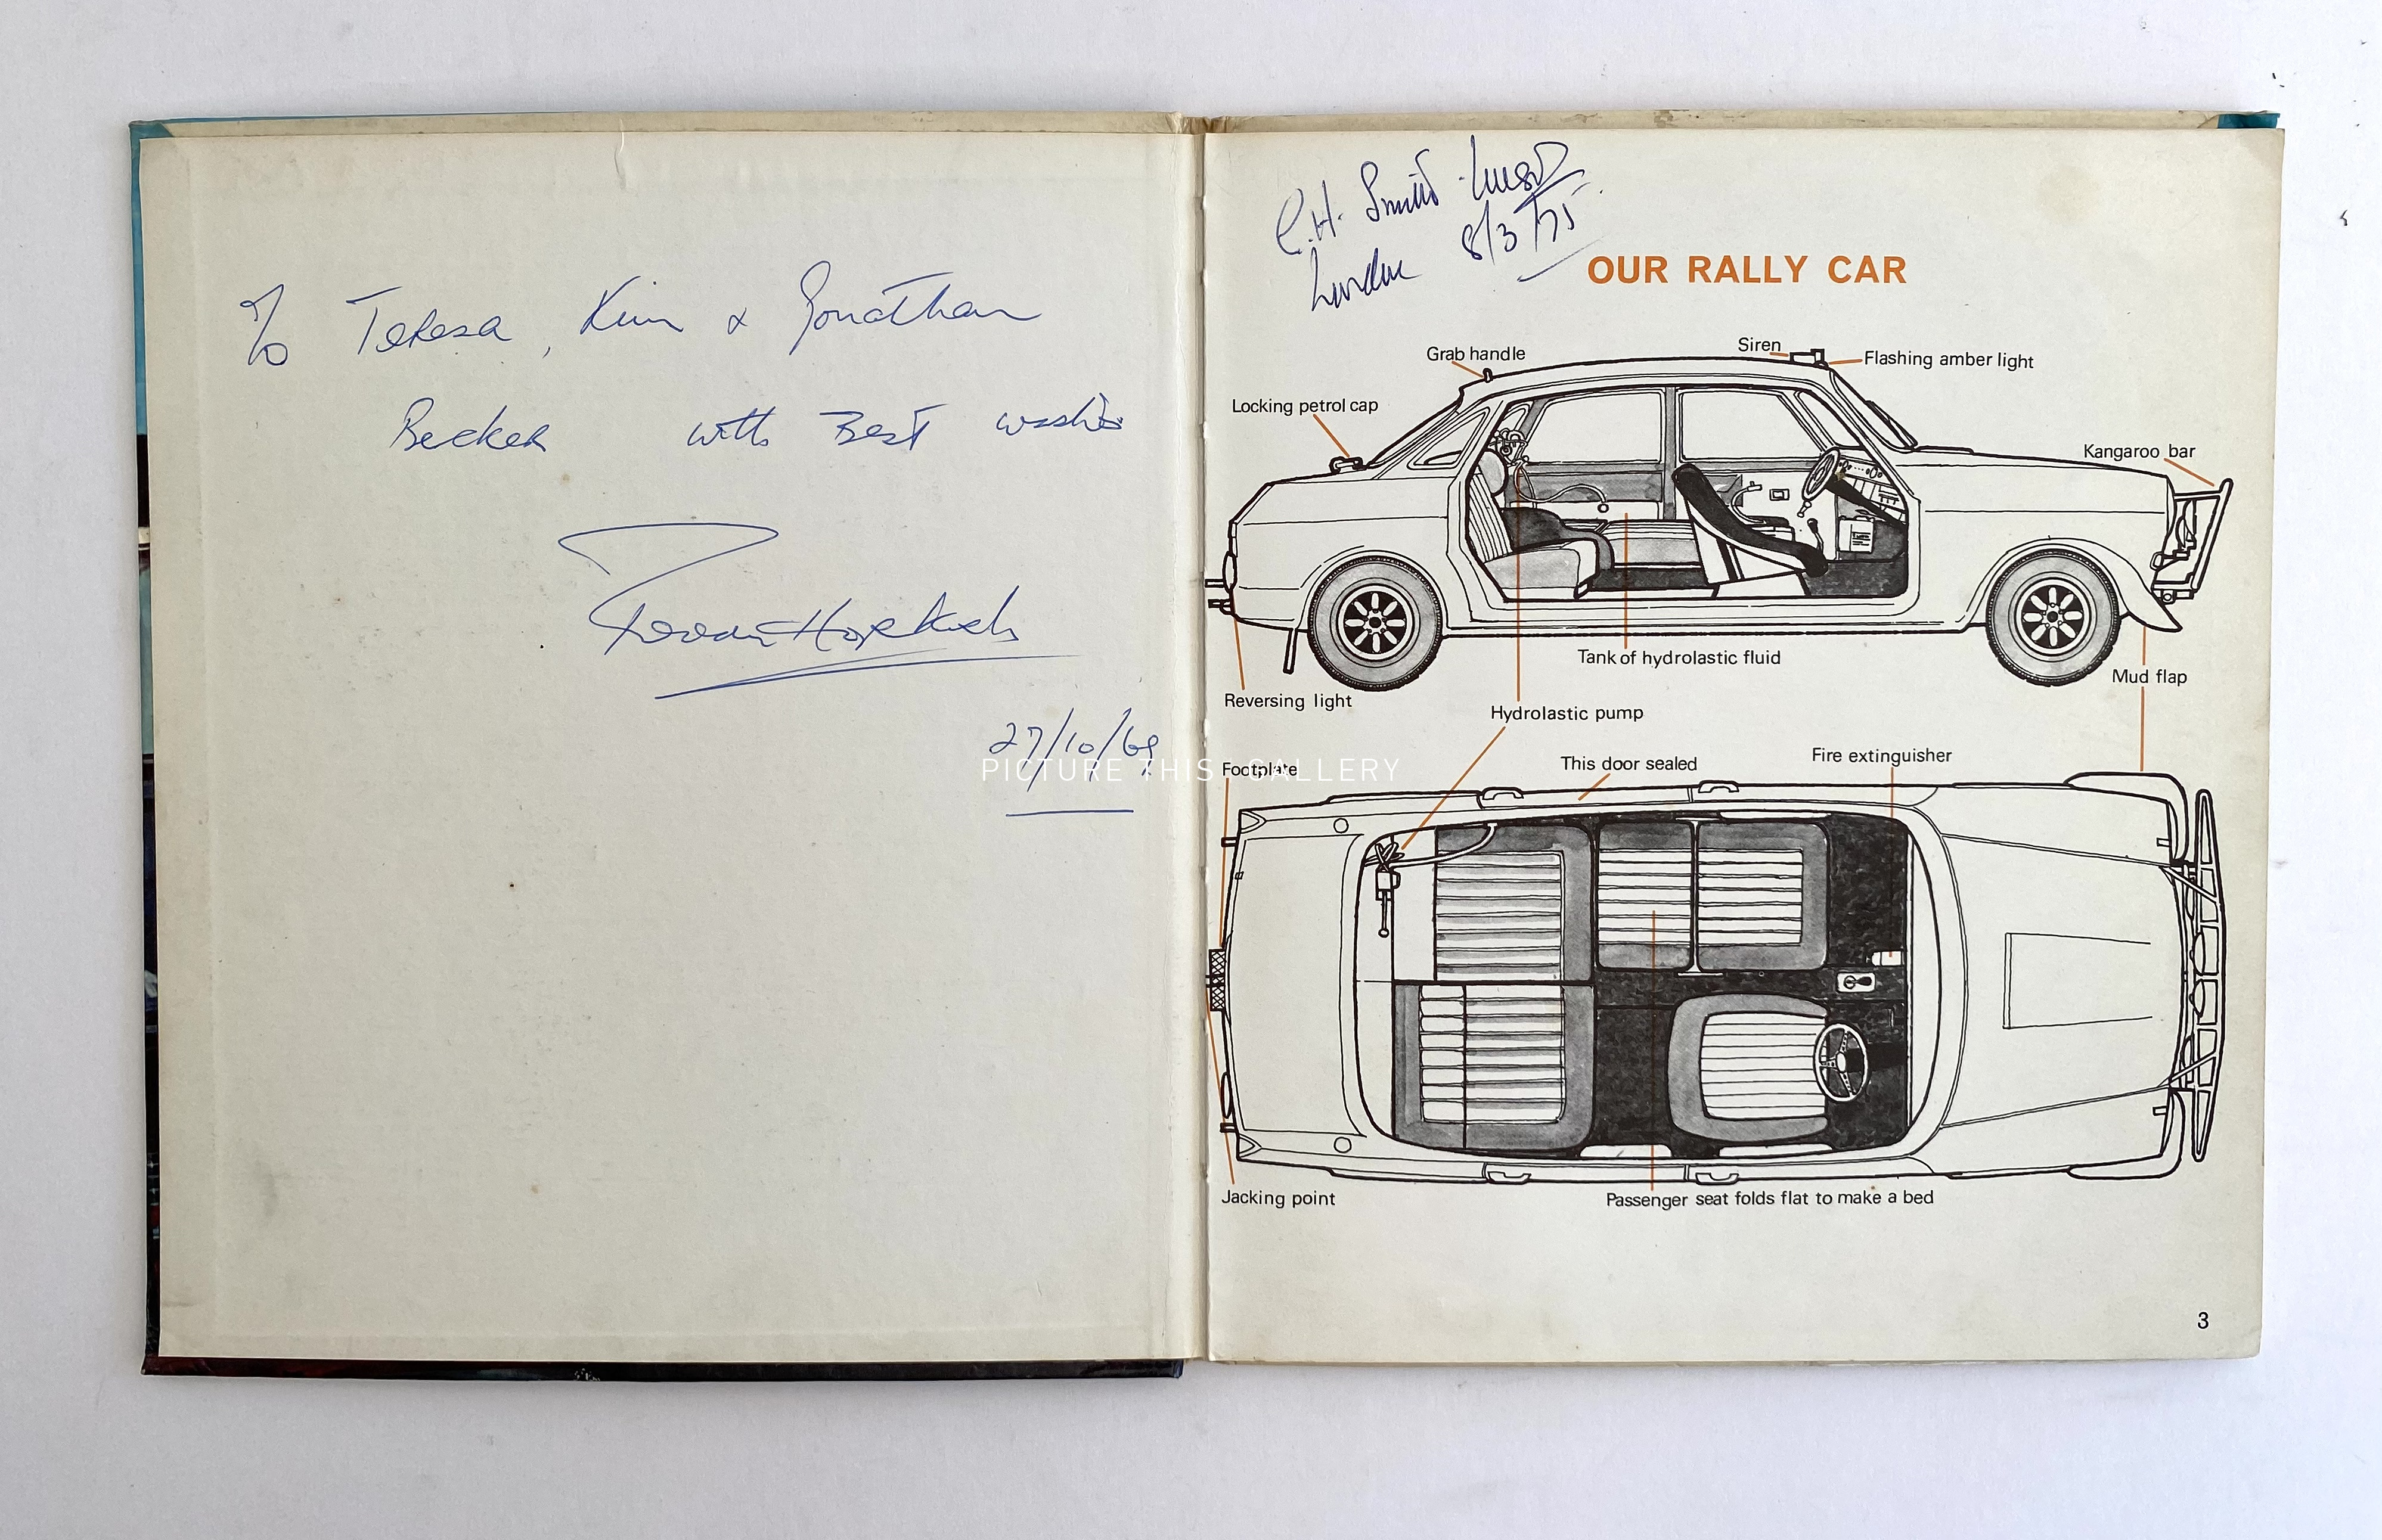 To Teresa, Kim & Jonathan
Becker with Best wishes
27/10/69
C.H. Smith
London 8/3/75
OUR RALLY CAR
Grab handle
Siren
Flashing amber light
Locking petrol cap
Kangaroo bar
Tank of hydrolastic fluid
Mud flap
Reversing light
Hydrolastic pump
Footplate
This door sealed
Fire extinguisher
PICTURE THIS GALLERY
Jacking point
Passenger seat folds flat to make a bed
3